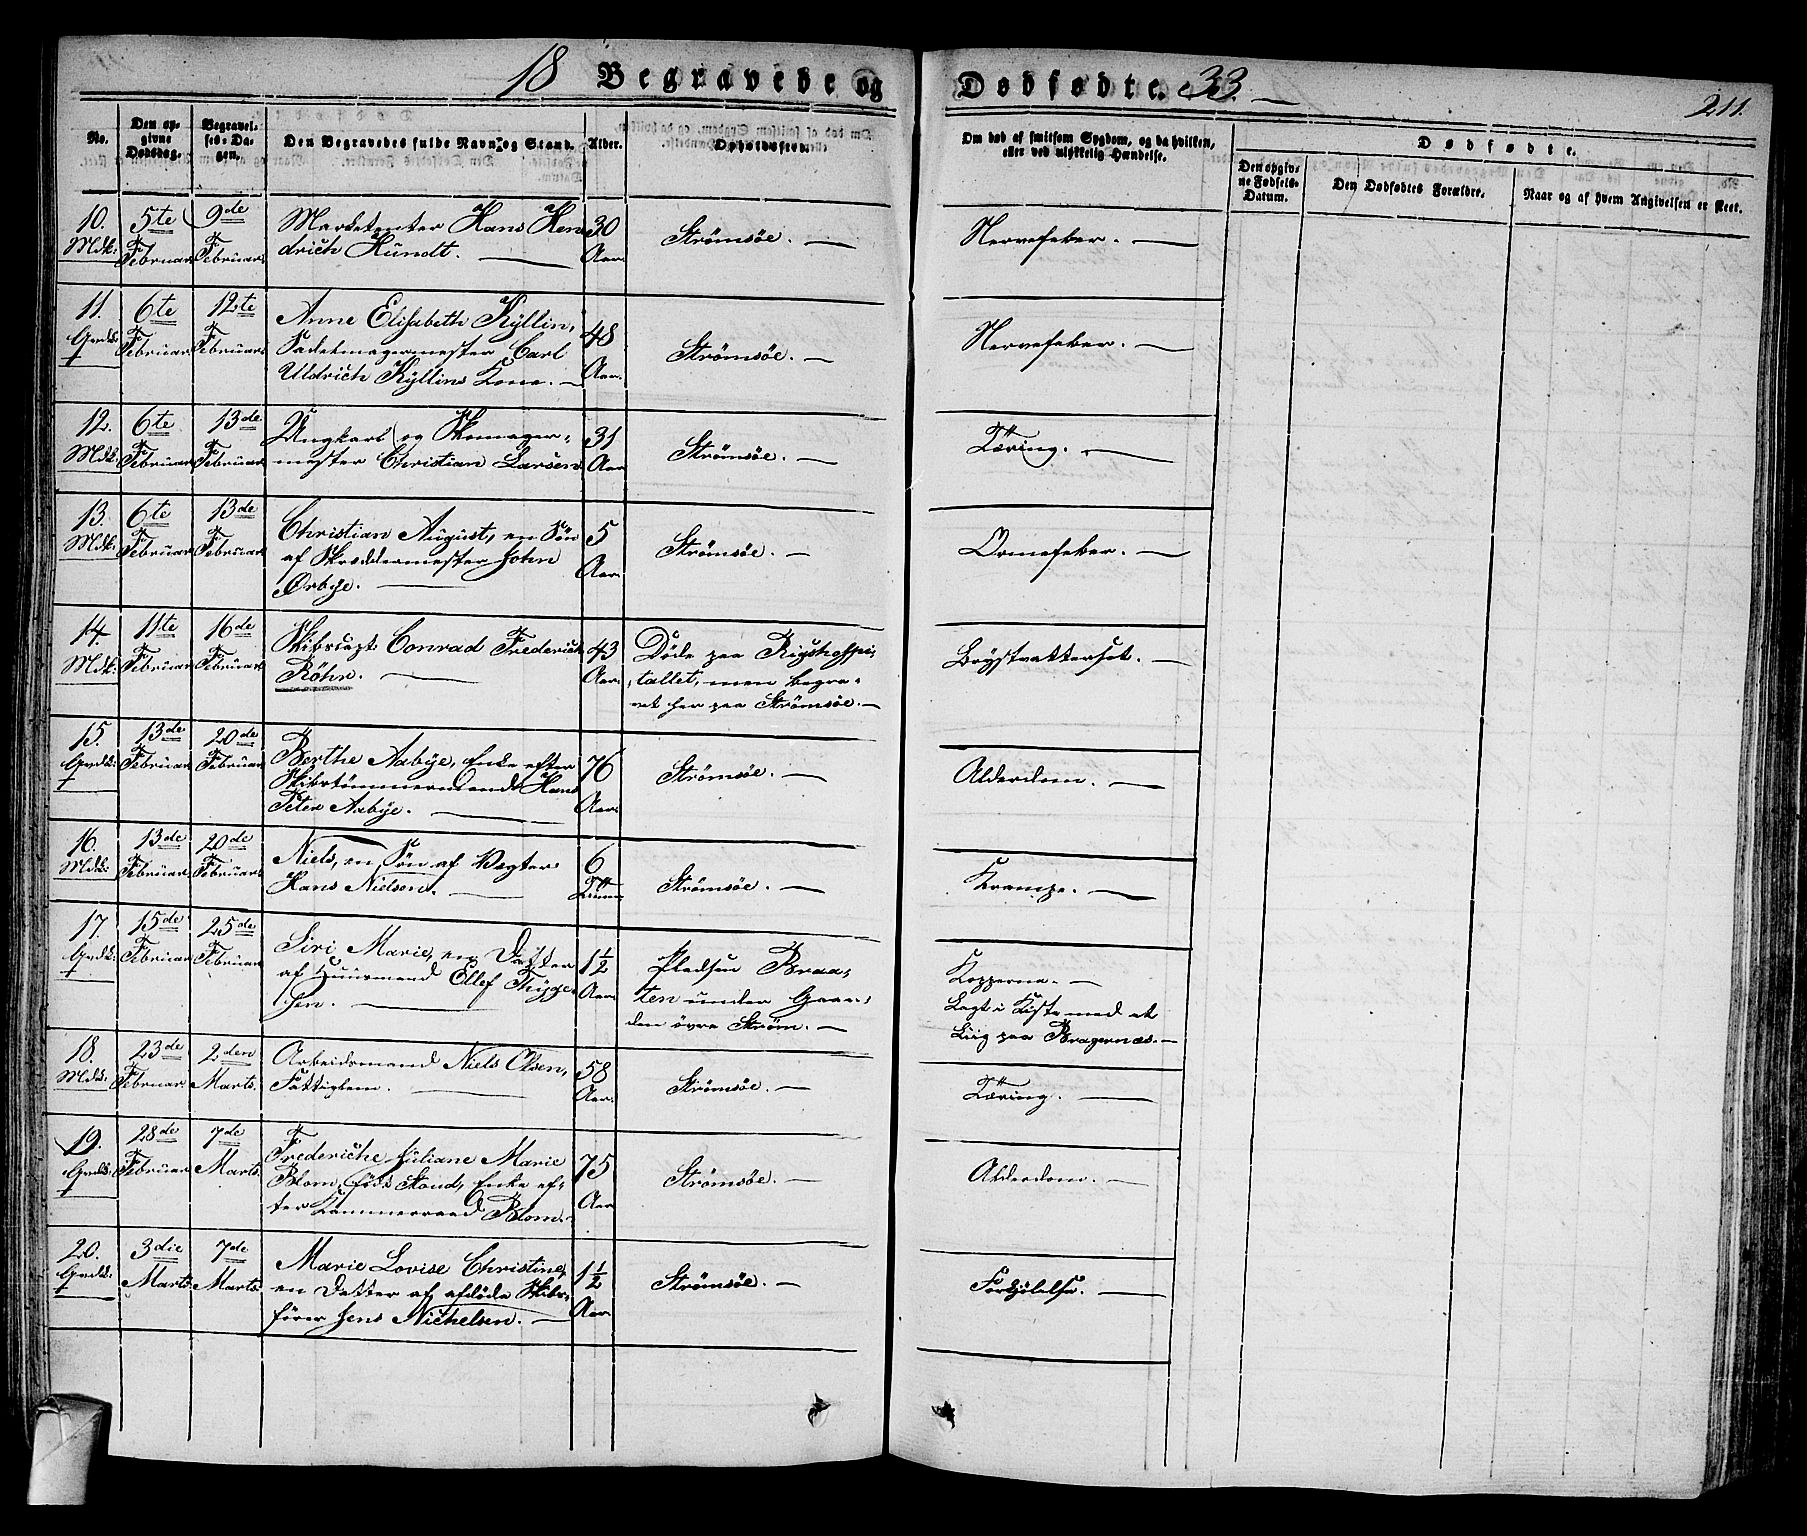 18 Begravede og Dødfødte. 33.
211.
No.
Den opgivne Dødsdag.
Begravelses-Dagen.
Den Begravedes fulde Navn og Stand.
Alder.
Opholdssted.
Om død af smitsom Sygdom, og da hvilken,
eller ved ulykkelig Hændelse.
Dødfødte.
Den opgivne Fødsels-Datum.
Den Dødfødtes Forældre.
Naar og af hvem Angivelsen er skeet.
10. 5te 9de Marketenter Hans Hen 30 Strømsøe. Nervefeber.
Mdk: Februar Februar drich Hündt. Aar.
11. 6te 12te Anne Elisabeth Kyllin, 48 Strømsøe. Nervefeber.
Qvdk: Februar Februar Sadelmagermester Carl
Uldrich Kyllins Kone. Aar.
12. 6te 13de Ungkarl og Skomager- 31 Strømsøe. Tæring.
Mdk: Februar Februar mester Christian Larsen Aar
13. 6te 13de Christian August, en Søn 5 Strømsøe. Ormefeber.
Mdk: Februar Februar af Skræddermester John Aar.
Ørbye.
14. 11te 16de Conrad Frederich 43 Døde paa Rigshospi- Brystvattersot.
Mdk: Februar Februar Röhn. Aar. tallet, men begra-
vet her paa Strømsøe.
15. 13de 20de Berthe Aabye, Enke efter 76 Strømsøe. Alderdom.
Qvdk: Februar Februar Skibstømmermand Hans
Peter Aabye. Aar.
16. 13de 20de Niels, en Søn af Vægter 6 Strømsøe. Krampe.
Mdk: Februar Februar Hans Nielsen.
17. 15de 25de Siri Marie, en Datter 1½ Pladsen Braa- Kopperne.
Qvdk: Februar Februar af Huusmand Ellef Trygge- Aar. ten under Gaar- Lagt i Kiste med et
sen. den øvre Strøm. Liig paa Bragernæs.
18. 23de 2den Arbeidsmand Niels Olsen, 58 Strømsøe. Tæring.
Mdk: Februar Marts. Fattiglem. Aar.
19. 28de 7de Frederiche Juliane Marie 75 Strømsøe. Alderdom.
Qvdk: Februar Marts. Blom, født Stoud, Enke ef-
ter Kammerraad Blom. Aar
20. 3die 7de Marie Lovise Christine, 1½ Strømsøe. Forkjølelse.
Qvdk: Marts Marts en Datter af afdøde Skibs-
fører Jens Nichelsen. Aar.